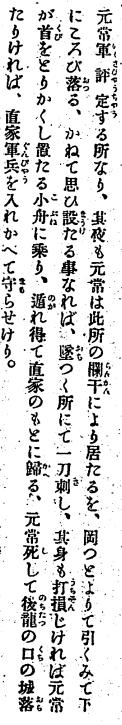 元常軍評定する所なり、其夜も元常は此所の欄干により居たるを、岡つとよりて引くみて下
にころび落る、かねて思ひ設たる事なれば、墜つく所にて一刀刺し、其身も打損じければ元常
が首をとりかくし置たる小舟に乘り、遁れ得て直家のもとに歸る、元常死して後龍の口の城落
たりければ、直家軍兵を入れかへて守らせけり。